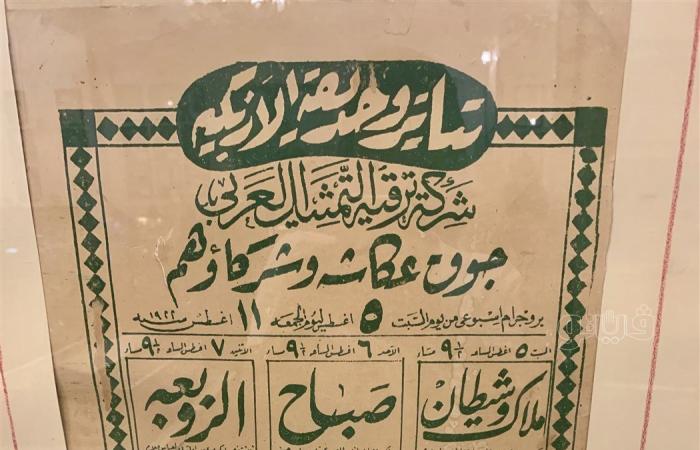 تياترو حديقة الازبكيه
شركة ترقية التمثيل العربى
جوق عكاشه وشركاؤهم
بروجرام اسبوعى من يوم السبت ٥ اغسطس ليوم الجمعه ١١ اغسطس سنه ١٩٢٢
السبت ٥ اغسطس الساعه ٩½ مساء
ملاك وشيطان
الاحد ٦ اغسطس الساعه ٩½ مساء
صباح
الاثنين ٧ اغسطس الساعه ٩½ مساء
الزوبعه